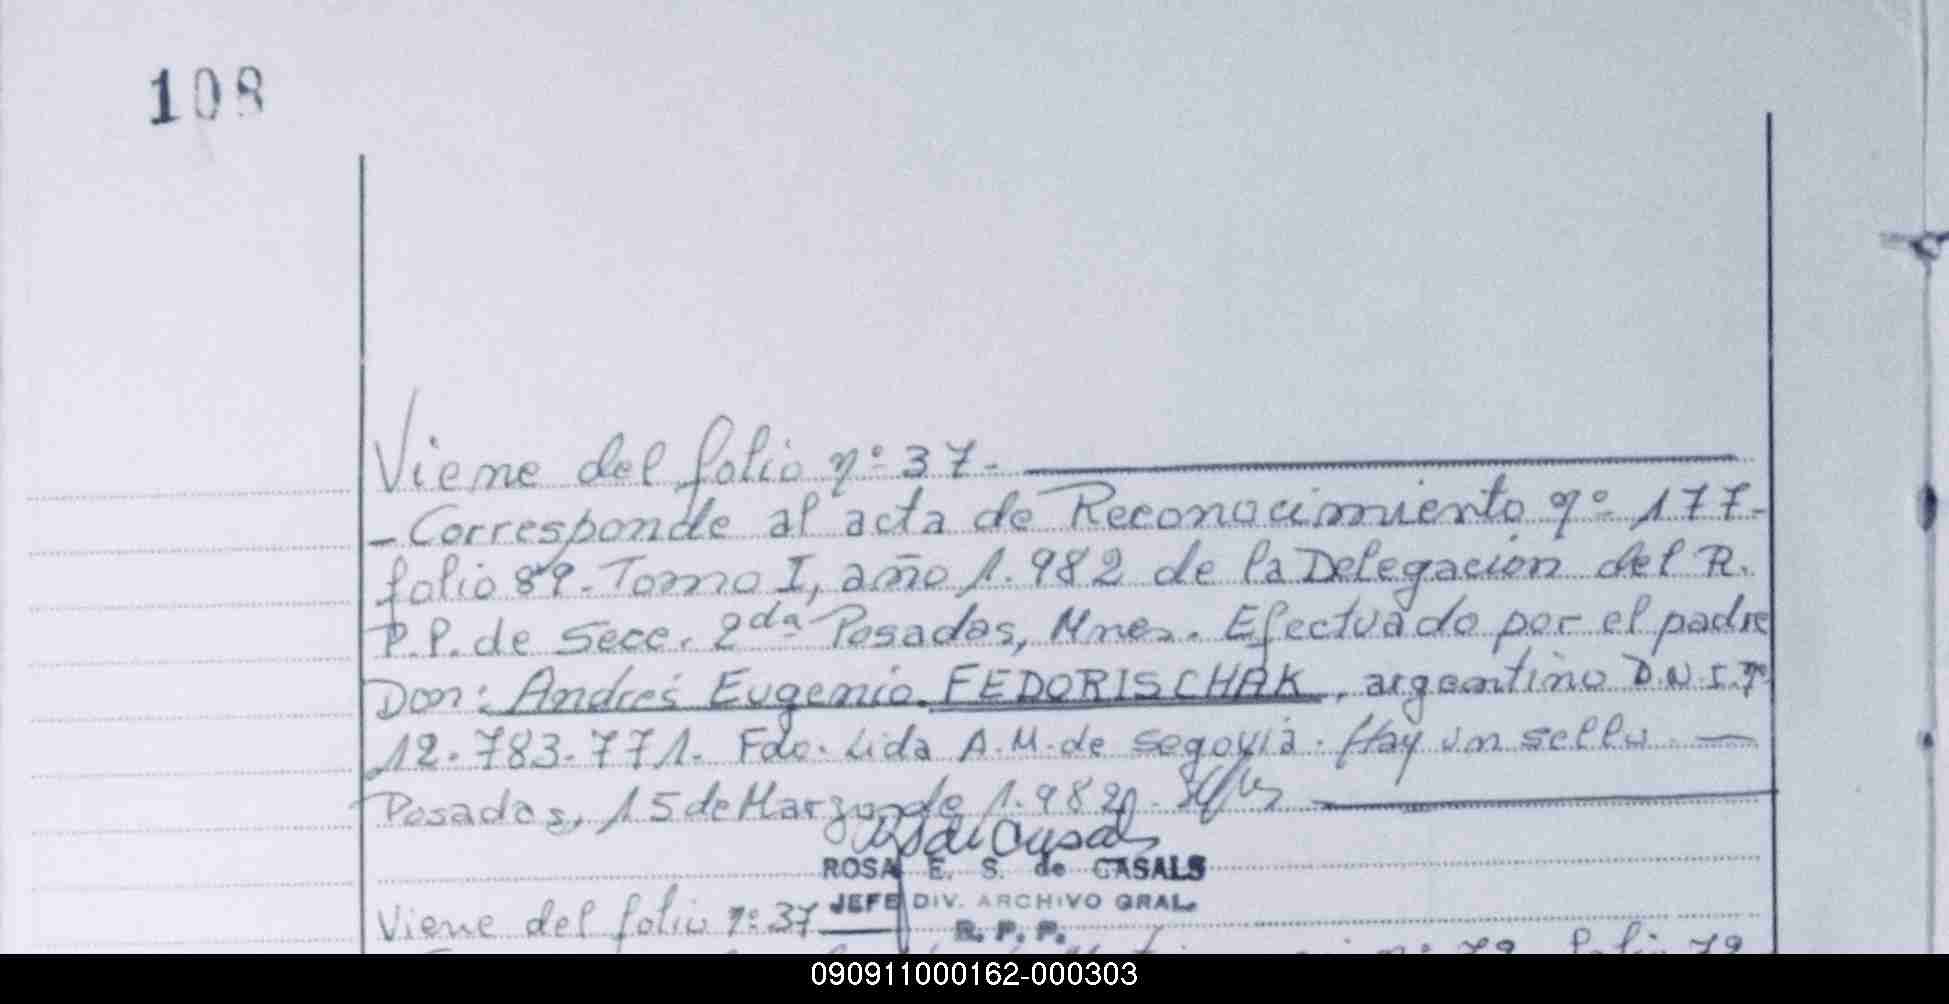 108
Viene del folio nº 37.
- Corresponde al acta de Reconocimiento nº 177-
folio 89. Tomo I, año 1.982 de la Delegación del R.
P.P. de Secc. 2da Posadas, Mnes. Efectuado por el padre
Don: Andrés Eugenio FEDORISCHAK, argentino D.N.I. nº
12.783.771. Fdo. Lida A.M. de Segovia. Hay un sello
Posadas, 15 de Marzo de 1.982.
ROSA E. S. de CASALS
JEFE DIV. ARCHIVO GRAL.
R. P. P.
Viene del folio nº 37
79 folio 79
090911000162-000303